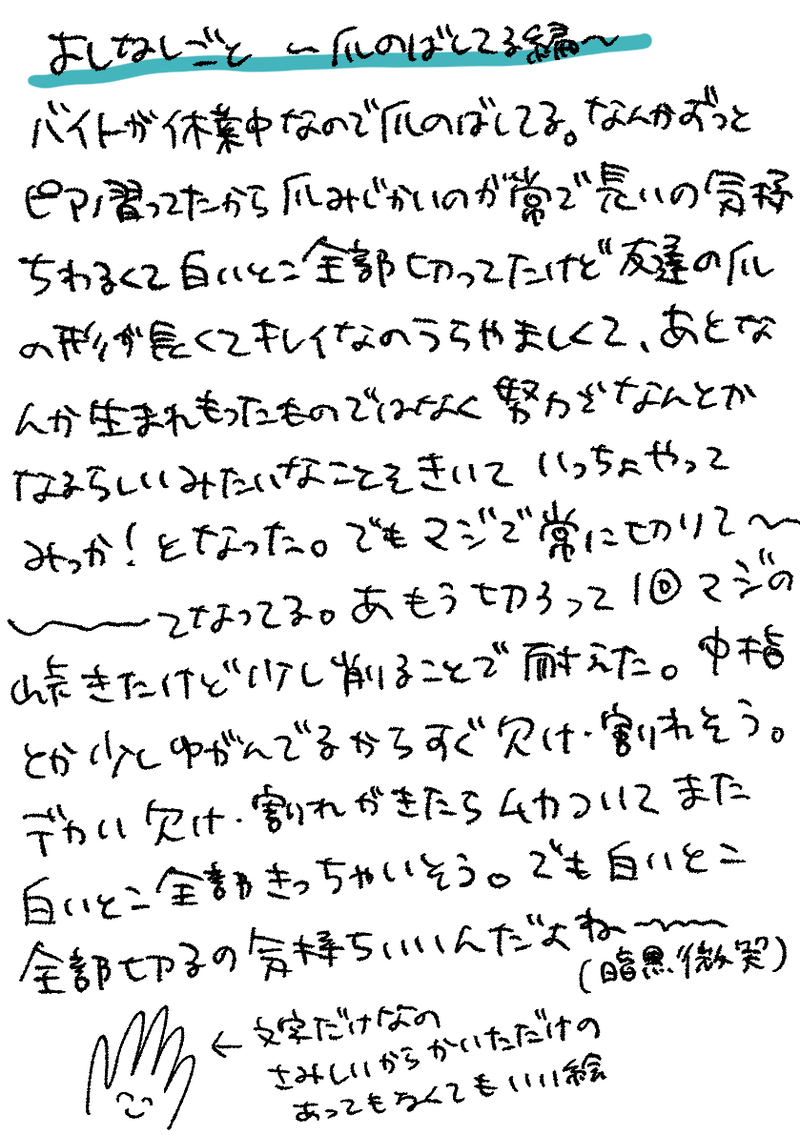 よしなしごと 〜爪のばしてる編〜
バイトが休業中なので爪のばしてる。なんかずっと
ピアノ習ってたから爪みじかいのが常で長いの気持
ちわるくて白いとこ全部切ってたけど友達の爪
の形が長くてキレイなのうらやましくて、あとな
んか生まれもったものではなく努力でなんとか
なるらしいみたいなことをきいていっちょやって
みっか！となった。でもマジで常に切りて〜
〜〜〜てなってる。あもう切ろって1回マジの
時きたけど少し削ることで耐えた。中指
とか少しゆがんでるからすぐ欠け・割れそう。
デカい欠け・割れがきたらムカついてまた
白いとこ全部きっちゃいそう。でも白いとこ
全部切るの気持ちいいんだよね〜〜〜
(暗黒微笑)
← 文字だけなの
さみしいからかいただけの
あってもなくてもいい絵